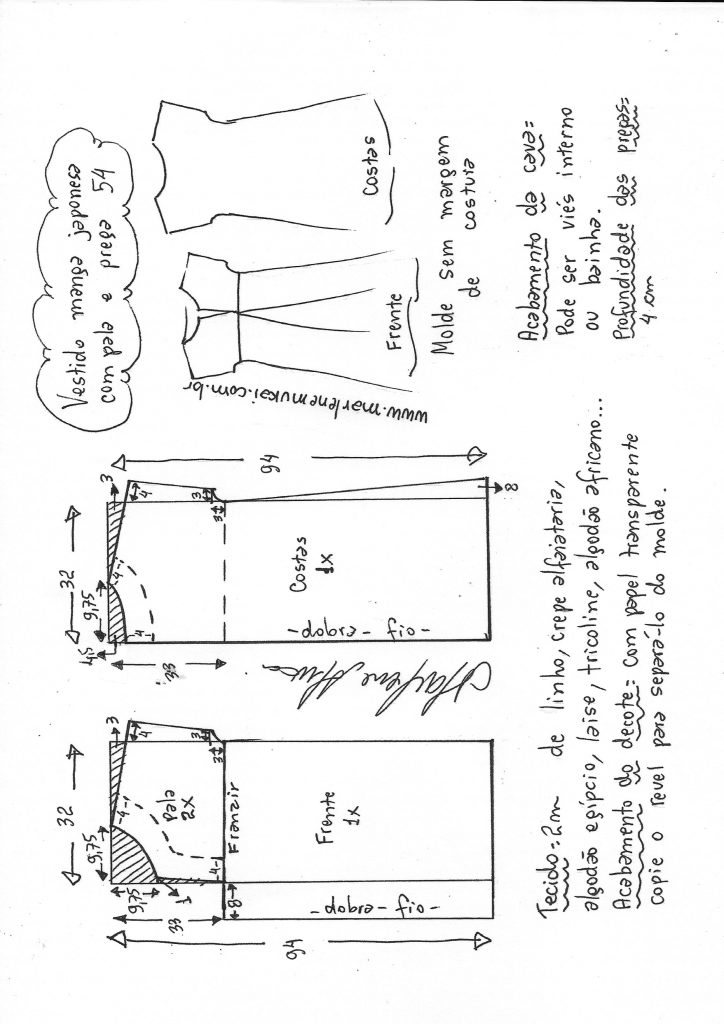 Vestido manga japonesa
com pala e prega 54
www.marlenemukai.com.br
Frente
Costas
Molde sem margem
de costura
Acabamento da cava=
Pode ser viés interno
ou bainha.
Profundidade das pregas=
4 cm
32
9,75
3
4
4
3
3
Pala
2x
9,75
1
33
4
8
Franzir
Frente
1x
-dobra-fio-
94
32
9,75
1,5
3
4
4
4
3
3
33
Costas
1x
-dobra-fio-
8
94
Marlene Mukai
Tecido=2m de linho, crepe alfaiataria,
algodão egípcio, laise, tricoline, algodão africano...
Acabamento do decote= Com papel transparente
copie o revel para separá-lo do molde.